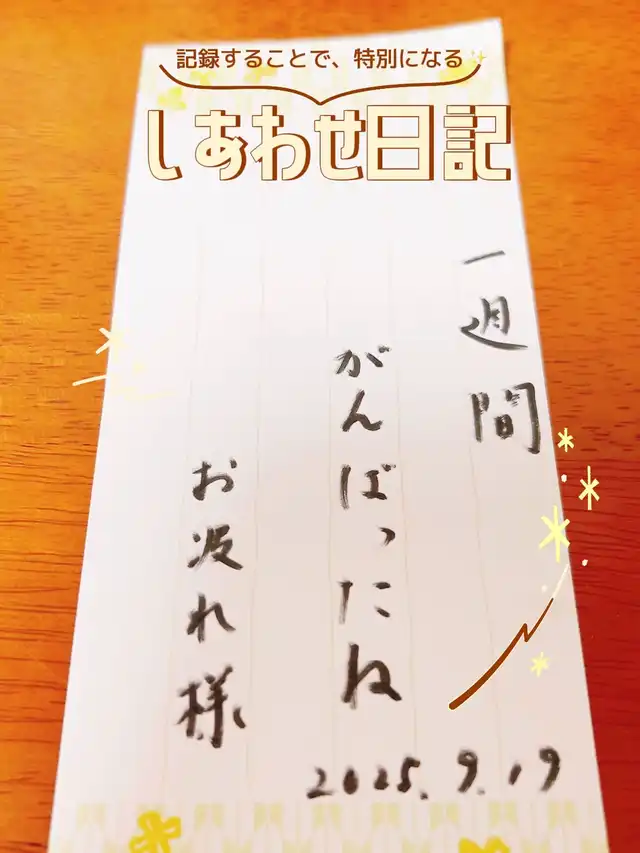 記録することで、特別になる
しあわせ日記
一週間
がんばったね
お疲れ様
2025.9.19